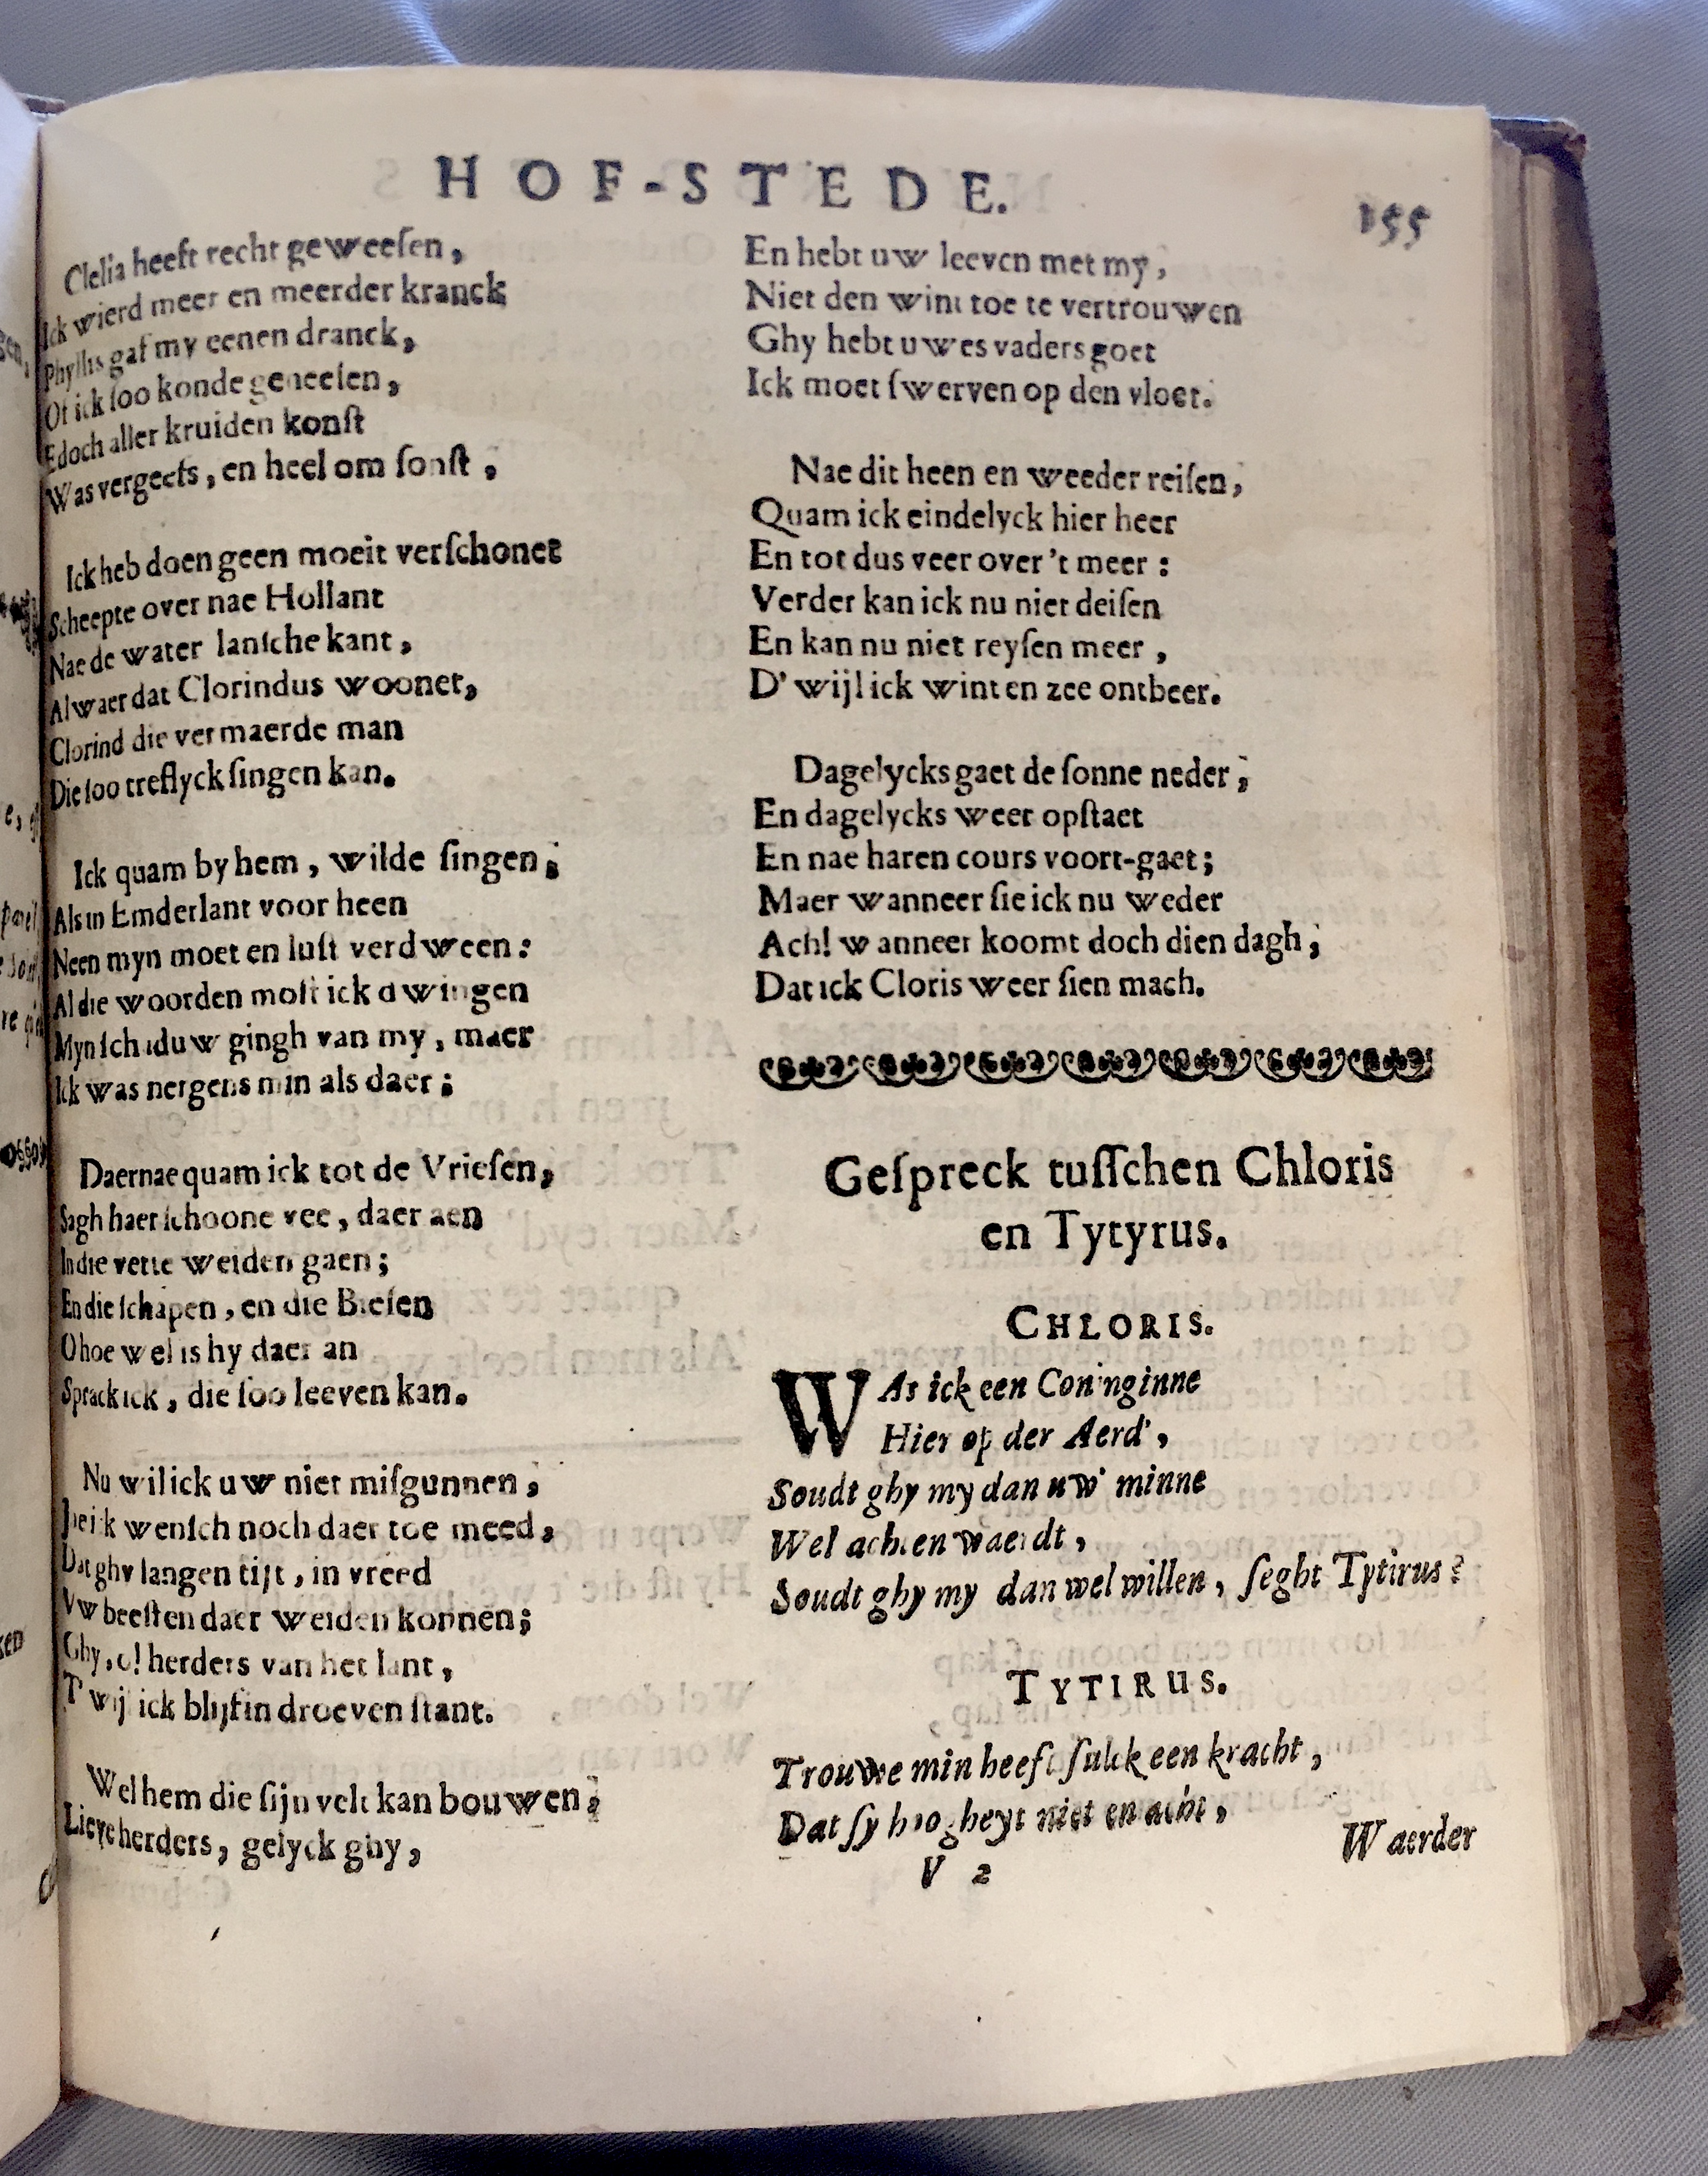 HOF-STEDE.
155
Clelia heeft recht geweeſen,
Ick wierd meer en meerder kranck
Phyllis gaf my eenen dranck,
Of ick ſoo konde geneeſen,
Edoch aller kruiden konſt
Was vergeefs, en heel om ſonſt,
Ick heb doen geen moeit verſchonet
Scheepte over nae Hollant
Nae de water lanſche kant,
Alwaer dat Clorindus woonet,
Clorind die vermaerde man
Die ſoo treflyck ſingen kan.
Ick quam by hem, wilde ſingen;
Als in Emderlant voor heen
Neen myn moet en luſt verdween:
Al die woorden moſt ick dwingen
Myn ſchaduw gingh van my, maer
Ick was nergens min als daer;
Daernae quam ick tot de Vrieſen,
Sagh haer ſchoone vee, daer aen
In die vette weiden gaen;
En die ſchapen, en die Bieſen
O hoe wel is hy daer an
Sprack ick, die ſoo leeven kan.
Nu wil ick uw niet miſgunnen,
wenſch noch daer toe meed,
Dat ghy langen tijt, in vreed
Vw beeſten daer weiden konnen;
Ghy, o! herders van het lant,
T'wijl ick blijf in droeven ſtant.
Wel hem die ſijn velt kan bouwen;
Lieve herders, gelyck ghy,
En hebt uw leeven met my,
Niet den wint toe te vertrouwen
Ghy hebt uwes vaders goet
Ick moet ſwerven op den vloet.
Nae dit heen en weeder reiſen,
Quam ick eindelyck hier heer
En tot dus veer over't meer:
Verder kan ick nu niet deiſen
En kan nu niet reyſen meer,
D'wijl ick wint en zee ontbeer.
Dagelycks gaet de ſonne neder;
En dagelycks weer opſtaet
En nae haren cours voort-gaet;
Maer wanneer ſie ick nu weder
Ach! wanneer koomt doch dien dagh,
Dat ick Cloris weer ſien mach.
Geſpreck tuſſchen Chloris
en Tytyrus.
CHLORIS.
WAs ick een Coninginne
Hier op der Aerd',
Soudt ghy my dan uw' minne
Wel achten waerdt,
Soudt ghy my dan wel willen, ſeght Tytirus?
TYTIRUS.
Trouwe min heeft ſulck een kracht,
Dat ſy hoogheyt niet en acht,
V 2
Waerder